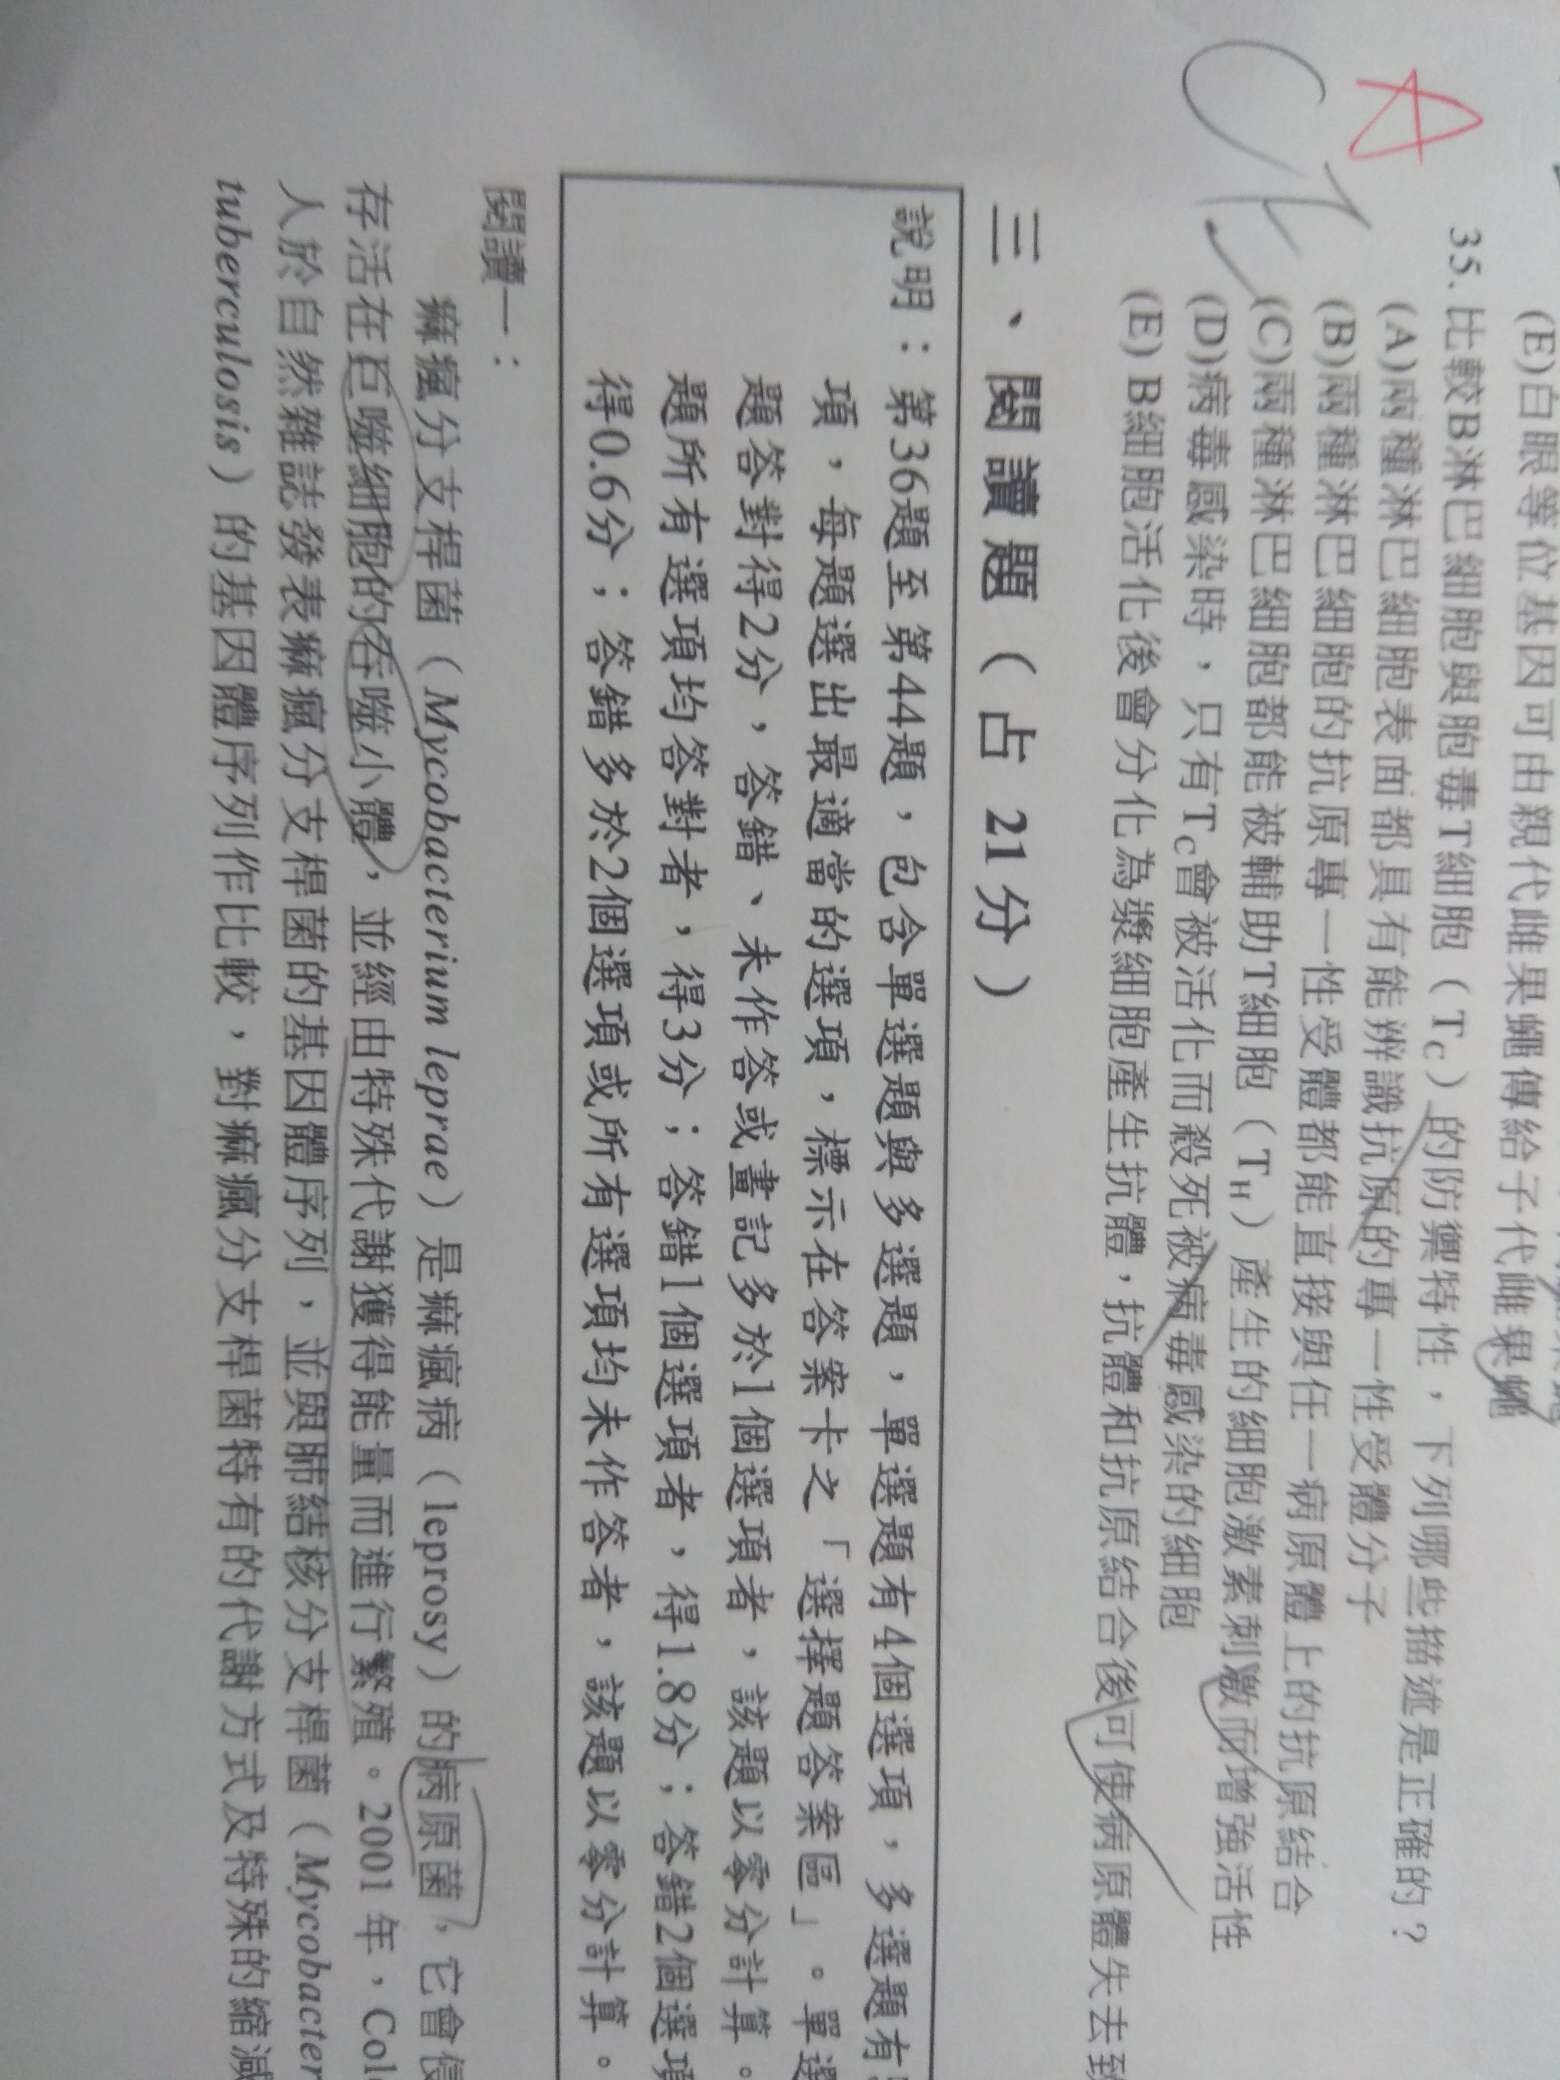 (E)白眼等位基因可由親代雌果蠅傳給子代雌果蠅
35. 比較B淋巴細胞與胞毒T細胞（TC）的防禦特性，下列哪些描述是正確的？
(A)兩種淋巴細胞表面都具有能辨識抗原的專一性受體分子
(B)兩種淋巴細胞的抗原專一性受體都能直接與任一病原體上的抗原結合
(C)兩種淋巴細胞都能被輔助T細胞（TH）產生的細胞激素刺激而增強活性
(D)病毒感染時，只有TC會被活化而殺死被病毒感染的細胞
(E) B細胞活化後會分化為漿細胞產生抗體，抗體和抗原結合後可使病原體失去致
三、閱讀題（占21分）
說明：第36題至第44題，包含單選題與多選題，單選題有4個選項，多選題有
項，每題選出最適當的選項，標示在答案卡之「選擇題答案區」。單選
題答對得2分，答錯、未作答或畫記多於1個選項者，該題以零分計算。
題所有選項均答對者，得3分；答錯1個選項者，得1.8分；答錯2個選項
得0.6分；答錯多於2個選項或所有選項均未作答者，該題以零分計算。
閱讀一：
痲瘋分支桿菌（Mycobacterium leprae）是痲瘋病（leprosy）的病原菌，它會侵
存活在巨噬細胞的吞噬小體，並經由特殊代謝獲得能量而進行繁殖。2001年，Cole
人於自然雜誌發表痲瘋分支桿菌的基因體序列，並與肺結核分支桿菌（Mycobacter
tuberculosis）的基因體序列作比較，對痲瘋分支桿菌特有的代謝方式及特殊的縮減